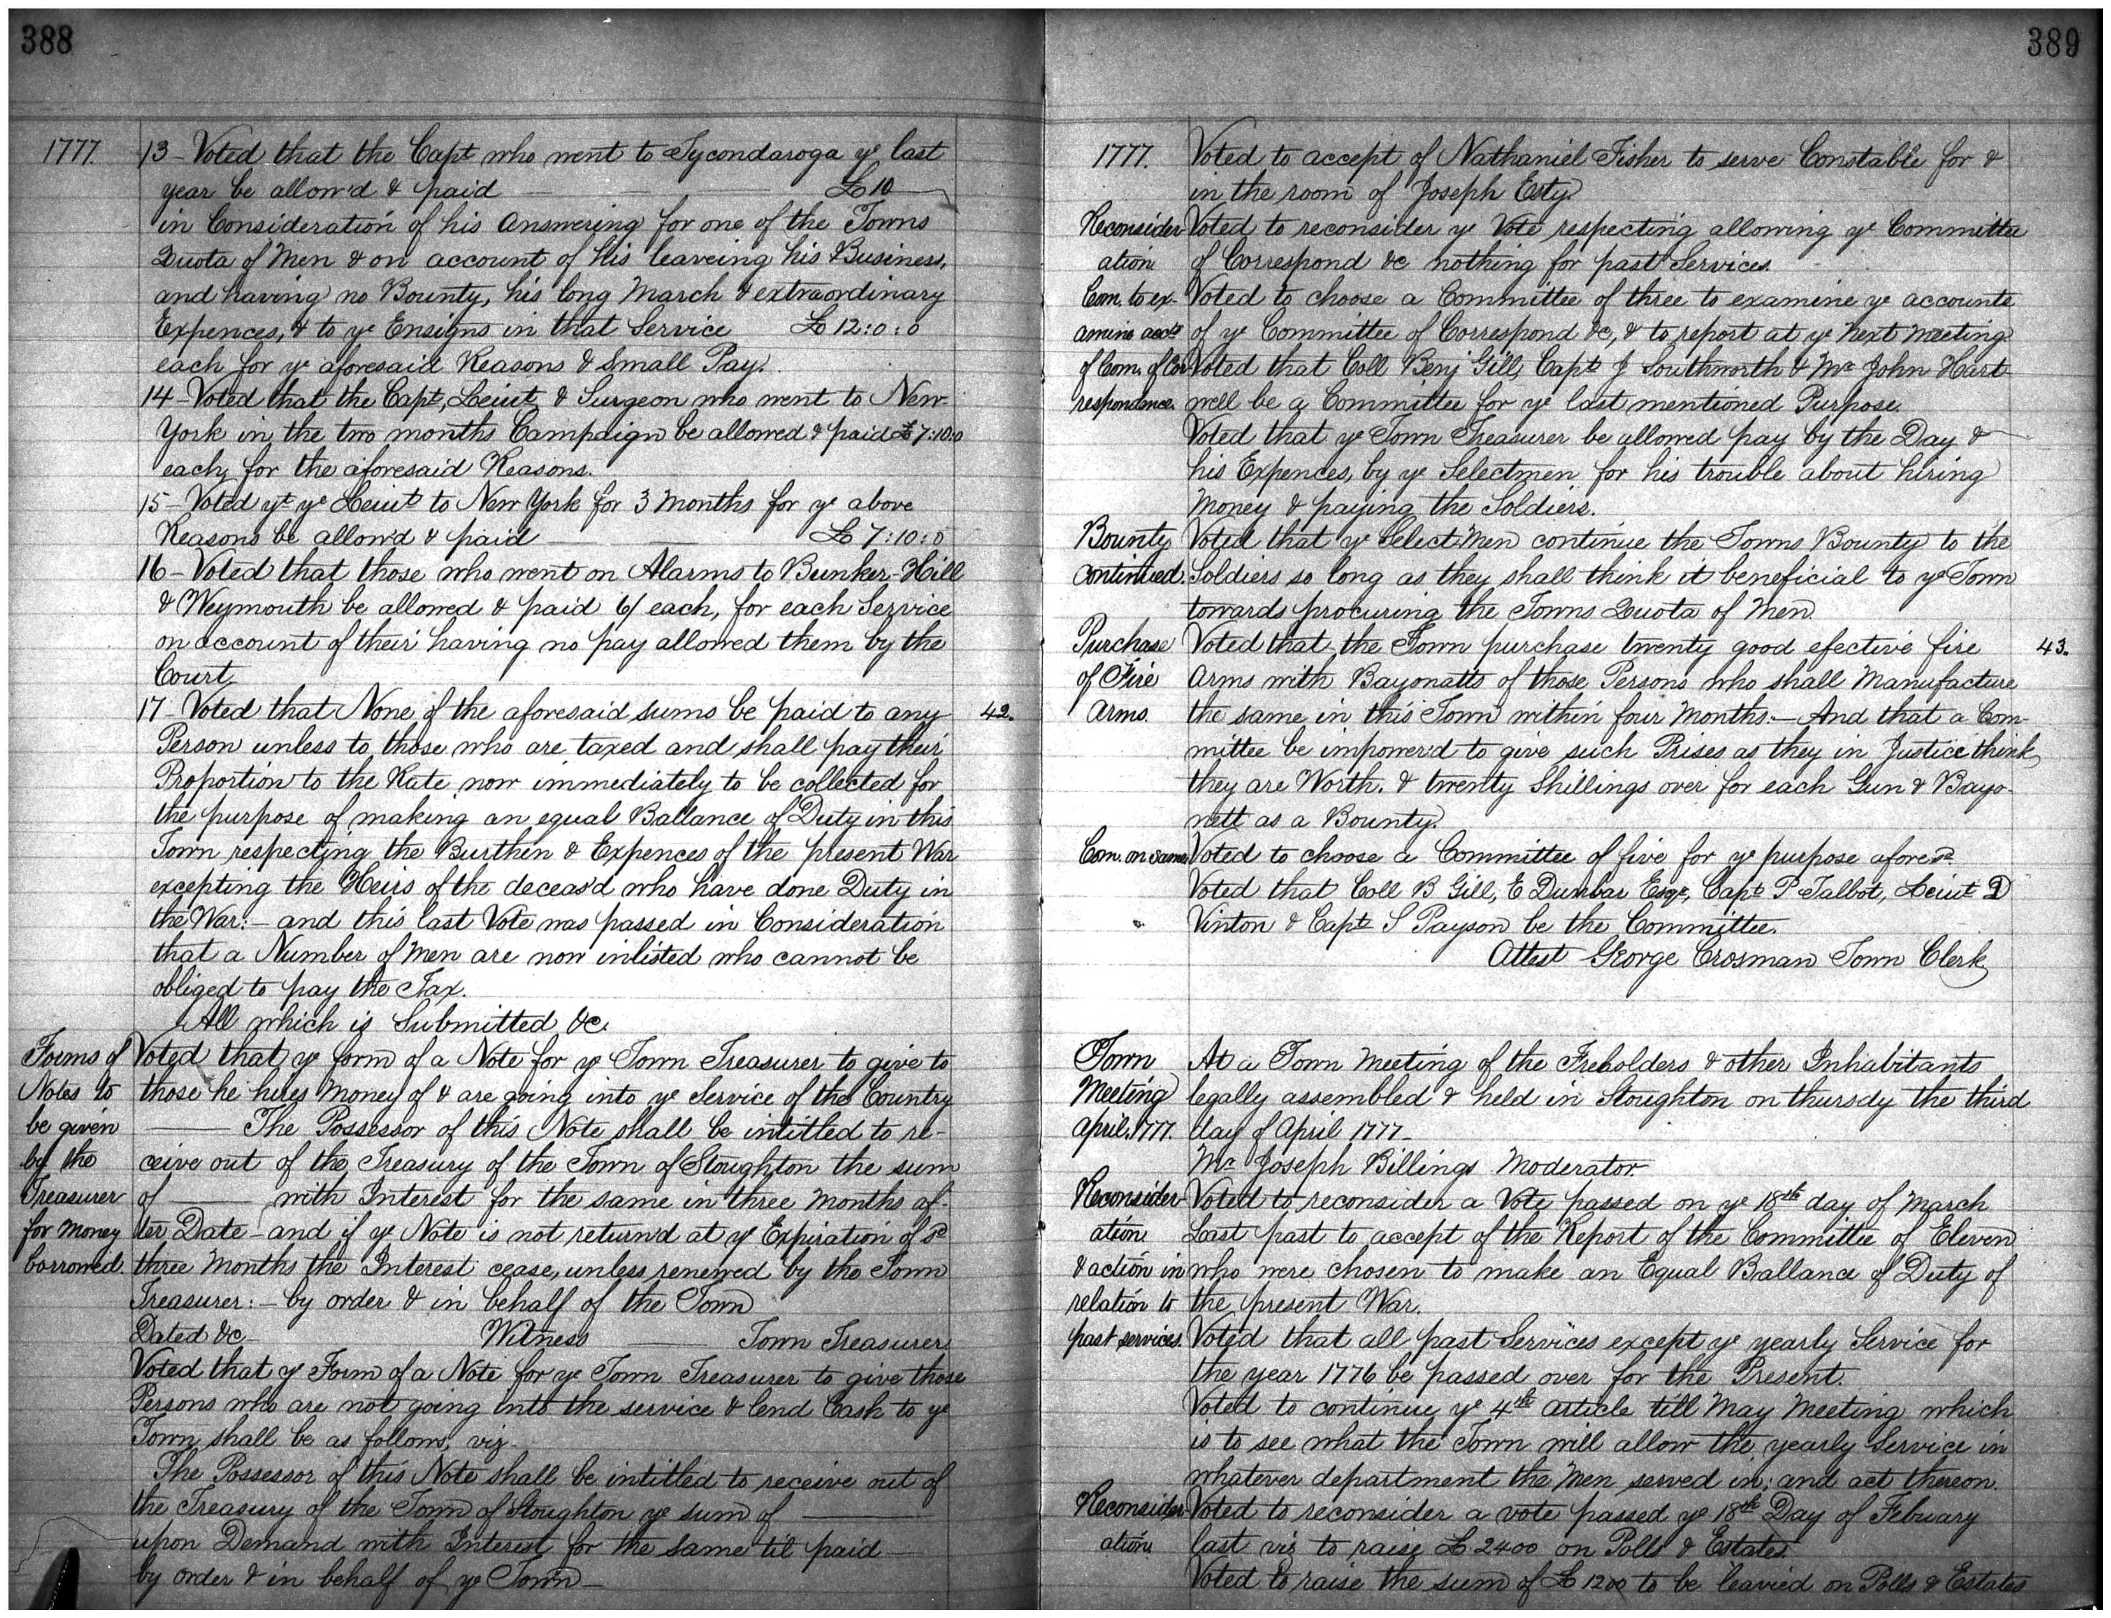 388
1777.
13 - Voted that the Capt who went to Tycondaroga ye last
year be allow'd & paid £10
in Consideration of his answering for one of the Towns
Quota of Men & on account of his leaveing his Business,
and having no Bounty, his long March & extraordinary
Expences, & to ye Ensigns in that Service £12:0:0
each for ye aforesaid Reasons & Small Pay.
14 - Voted that the Capt, Leiut & Surgeon who went to New-
York in the two months Campaign be allowed & paid £7:10:0
each for the aforesaid Reasons.
15 - Voted yt ye Leiut to New York for 3 Months for ye above
Reasons be allow'd & paid £7:10:0
16 - Voted that those who went on Alarms to Bunker-Hill
& Weymouth be allowed & paid 6/ each, for each Service
on account of their having no pay allowed them by the
Court.
17 - Voted that None of the aforesaid sums be paid to any 42.
Person unless to those who are taxed and shall pay their
Proportion to the Rate now immediately to be collected for
the purpose of making an equal Ballance of Duty in this
Town respecting the Burthen & Expences of the present War
excepting the Heirs of the deceas'd who have done Duty in
the War: - and this last Vote was passed in Consideration
that a Number of Men are now inlisted who cannot be
obliged to pay the Tax.
All which is Submitted &c.
Forms of Voted that ye form of a Note for ye Town Treasurer to give to
Notes to those he hires Money of & are going into ye Service of the Country
be given The Possessor of this Note shall be intitled to re-
by the ceive out of the Treasury of the Town of Stoughton the sum
Treasurer of with Interest for the same in three Months af-
for Money ter Date - and if ye Note is not return'd at ye Expiration of sd
borrowed. three Months the Interest cease, unless renewed by the Town
Treasurer: - by order & in behalf of the Town
Dated &c Witness Town Treasurer
Voted that ye Form of a Note for ye Town Treasurer to give those
Persons who are not going into the service & lend Cash to ye
Town shall be as follows, viz -
The Possessor of this Note shall be intitled to receive out of
the Treasury of the Town of Stoughton ye sum of
upon Demand with Interest for the same til paid -
by order & in behalf of ye Town -
389
1777. Voted to accept of Nathaniel Fisher to serve Constable for &
in the room of Joseph Esty.
Reconsider- Voted to reconsider ye Vote respecting allowing ye Committee
ation. of Correspond &c nothing for past Services.
Com. to ex- Voted to choose a Committee of three to examine ye accounts
amine accts of ye Committee of Correspond &c, & to report at ye next meeting
of Com. of Cor- Voted that Coll Benj Gill, Capt J Southworth & Mr John Hart-
respondence. well be a Committee for ye last mentioned Purpose.
Voted that ye Town Treasurer be allowed pay by the Day &
his Expences, by ye Selectmen for his trouble about hiring
Money & paying the Soldiers.
Bounty Voted that ye Select Men continue the Towns Bounty to the
continued. Soldiers so long as they shall think it beneficial to ye Town
towards procuring the Towns Quota of Men
Purchase Voted that the Town purchase twenty good efective fire 43.
of Fire Arms with Bayonatts of those Persons who shall Manufacture
Arms. the same in this Town within four Months. - And that a Com-
mittee be impower'd to give such Prises as they in Justice think
they are Worth. & twenty Shillings over for each Gun & Bayo-
nett as a Bounty.
Com. on same Voted to choose a Committee of five for ye purpose aforesd.
Voted that Coll B Gill, E Dunbar Esqr, Capt P Talbot, Leiut D
Vinton & Capt S Payson be the Committee.
Attest George Crosman Town Clerk
Town At a Town Meeting of the Freholders & other Inhabitants
Meeting legally assembled & held in Stoughton on thursdy the third
April. 1777. day of April 1777 -
Mr Joseph Billings Moderator.
Reconsider- Voted to reconsider a Vote passed on ye 18th day of March
ation Last past to accept of the Report of the Committee of Eleven
& action in who were chosen to make an Equal Ballance of Duty of
relation to the present War.
past services. Voted that all past Services except ye yearly Service for
the year 1776 be passed over for the Present.
Voted to continue ye 4th article till May Meeting which
is to see what the Town will allow the yearly Service in
whatever department the Men served in; and act thereon.
Reconsider- Voted to reconsider a vote passed ye 18th Day of Febuary
ation. last viz to raise £2400 on Polls & Estates.
Voted to raise the sum of £1200 to be leavied on Polls & Estates